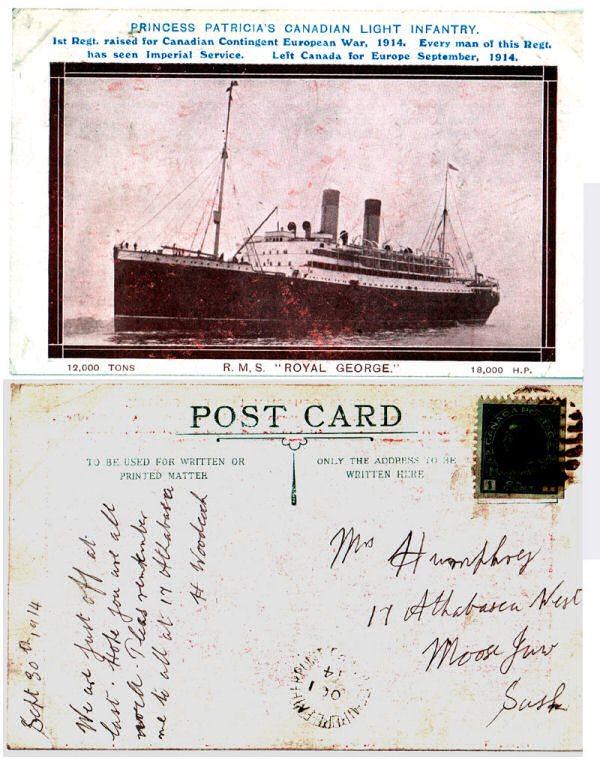 PRINCESS PATRICIA'S CANADIAN LIGHT INFANTRY.
1st Regt. raised for Canadian Contingent European War, 1914. Every man of this Regt.
has seen Imperial Service. Left Canada for Europe September, 1914.
12,000 TONS
R. M. S. "ROYAL GEORGE."
18,000 H.P.
POST CARD
TO BE USED FOR WRITTEN OR
PRINTED MATTER
ONLY THE ADDRESS TO BE
WRITTEN HERE
CANADA POSTAGE
1
CENT
Sept 30th 1914
We are just off at
last. Hope you are all
well. Pleas remember
me to all at 17 Athabasca
H
Mrs Humphrey
17 Athabasca West
Moose Jaw
Sask
OC 1
14